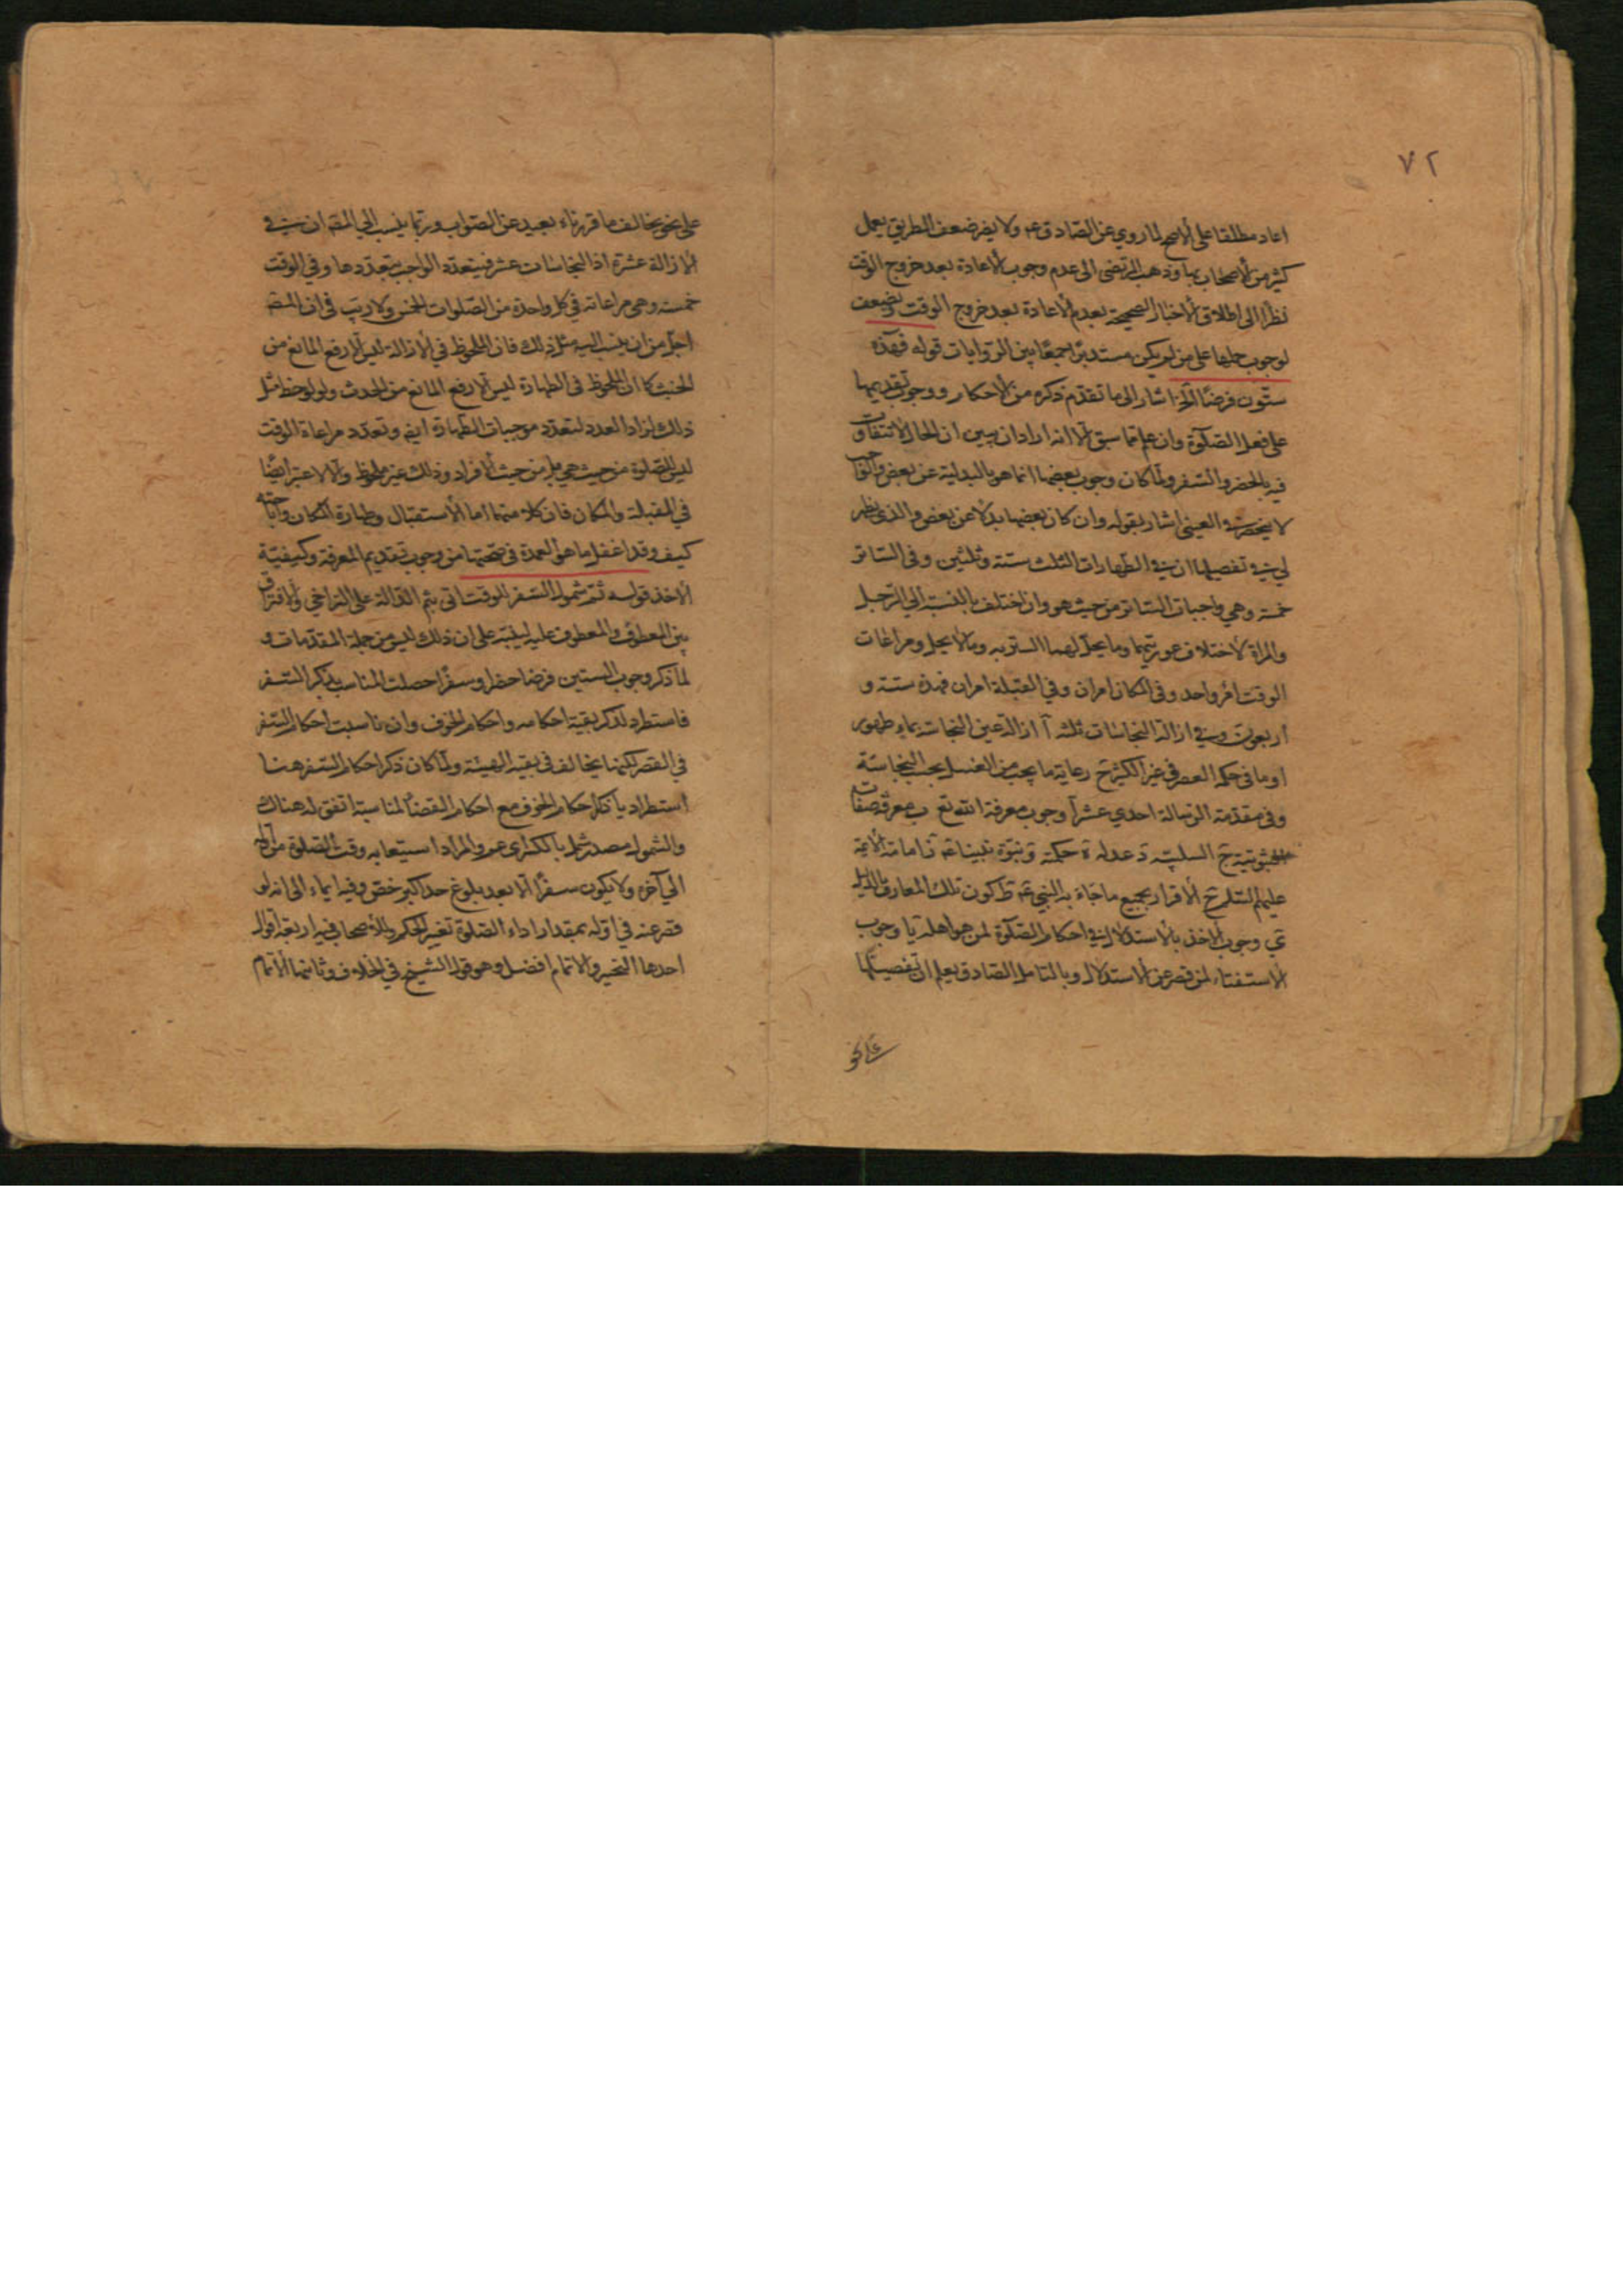 ٧٢
اعاد مطلقا على الاصح لما روي عن الصادق ع ولا يضر ضعف الطريق بعمل
كثير من الاصحاب بها وذهب المرتضى الى عدم وجوب الاعادة بعد خروج الوقت
نظرا الى اطلاق الاخبار الصحيحة بعدم الاعادة بعد خروج الوقت ويضعف
لوجوب حملها على من لم يكن مستدبرا جمعا بين الروايات قوله فهذه
ستون فرضا الخ اشار الى ما تقدم ذكره من الاحكام ووجوب تقديمها
على فعل الصلوة وان علم مما سبق الا انه اراد ان يبين ان الحال لا تتفاوت
فيه بالحضر والسفر ولما كان وجوب بعضها انما هو بالبدلية عن بعض
لا ينحصر في العيني اشار بقوله وان كان بعضها بدلا عن بعض والذي يظهر
لي في تفصيلها ان في الطهارات الثلث ستة وثلثين وفي الساتر
خمسة وهي واجبات الساتر من حيث هو وان اختلف بالنسبة الى الرجل
والمراة لاختلاف عورتيهما وما يحل لهما الستر به وما لا يحل ومراعات
الوقت امر واحد وفي المكان امران وفي القبلة امران فهذه ستة و
اربعون وفي ازالة النجاسات ثلثه آ ازالة عين النجاسة بماء طهور
او ما في حكمه العصر في غير الكثير ج رعاية ما يجب من الغسل بحسب النجاسة
وفي مقدمة الرسالة احدى عشر آ وجوب معرفة الله تع ب معرفة صفات
الثبوتية ج السلبية د عدله ه حكمته و نبوة نبينا ع ز امامة الائمة
عليهم السلم ح الاقرار بجميع ما جاء به النبي ع ط كون تلك المعارف بالدليل
ي وجوب الاخذ بالاستدلال في احكام الصلوة لمن هو اهله يا وجوب
الاستفتاء لمن قصر عن الاستدلال وبالتامل الصادق يعلم ان تفصيلها
على نحو
على نحو يخالف ما قررناه بعيد عن الصواب وربما ينسب الى المصه ان في
الازالة عشرة اذ النجاسات عشر فيتعدد الواجب بتعددها وفي الوقت
خمسة وهي مراعاته في كل واحدة من الصلوات الخمس ولا ريب في ان المصه
اجل من ان ينسب اليه مثل ذلك فان الملحوظ في الازالة ليس الا رفع المانع من
الخبث كما ان الملحوظ في الطهارة ليس الا رفع المانع من الحدث ولو لوحظ مثل
ذلك لزاد العدد لتعدد موجبات الطهارة ايض وتعدد مراعاة الوقت
ليس للصلوة من حيث هي بل من حيث الافراد وذلك غير ملحوظ والا لاعتبر ايضا
في القبلة والمكان فان كلا منهما اما الاستقبال وطهارة المكان واباحته
كيف وقد اغفل ما هو العمدة في صحتها من وجوب تقديم المعرفة وكيفية
الاخذ قوله ثم شمول السفر للوقت اتى بثم الدالة على التراخي والافتراق
بين المعطوف والمعطوف عليه لينبه على ان ذلك ليس من جملة المقدمات و
لما ذكر وجوب الستين فرضا حضرا وسفرا حصلت المناسبة بذكر السفر
فاستطرد لذكر بقية احكامه واحكام الخوف وان ناسبت احكام السفر
في القصر لكنها يخالف في بقية الهيئة ولما كان ذكر احكام السفر هنا
استطراديا ذكر احكام الخوف مع احكام القضاء لمناسبة اتفق له هناك
والشمول مصدر شمل بالكسر اي عم والمراد استيعابه وقت الصلوة من اوله
الى آخره ولا يكون سفرا الا بعد بلوغ حد اكبر خص وفيه ايماء الى انه لو
قصر عنه في اوله بمقدار اداء الصلوة تغير الحكم وللاصحاب فيه اربعة اقوال
احدها التخير والاتمام افضل وهو قول الشيخ في الخلاف وثانيها الاتمام